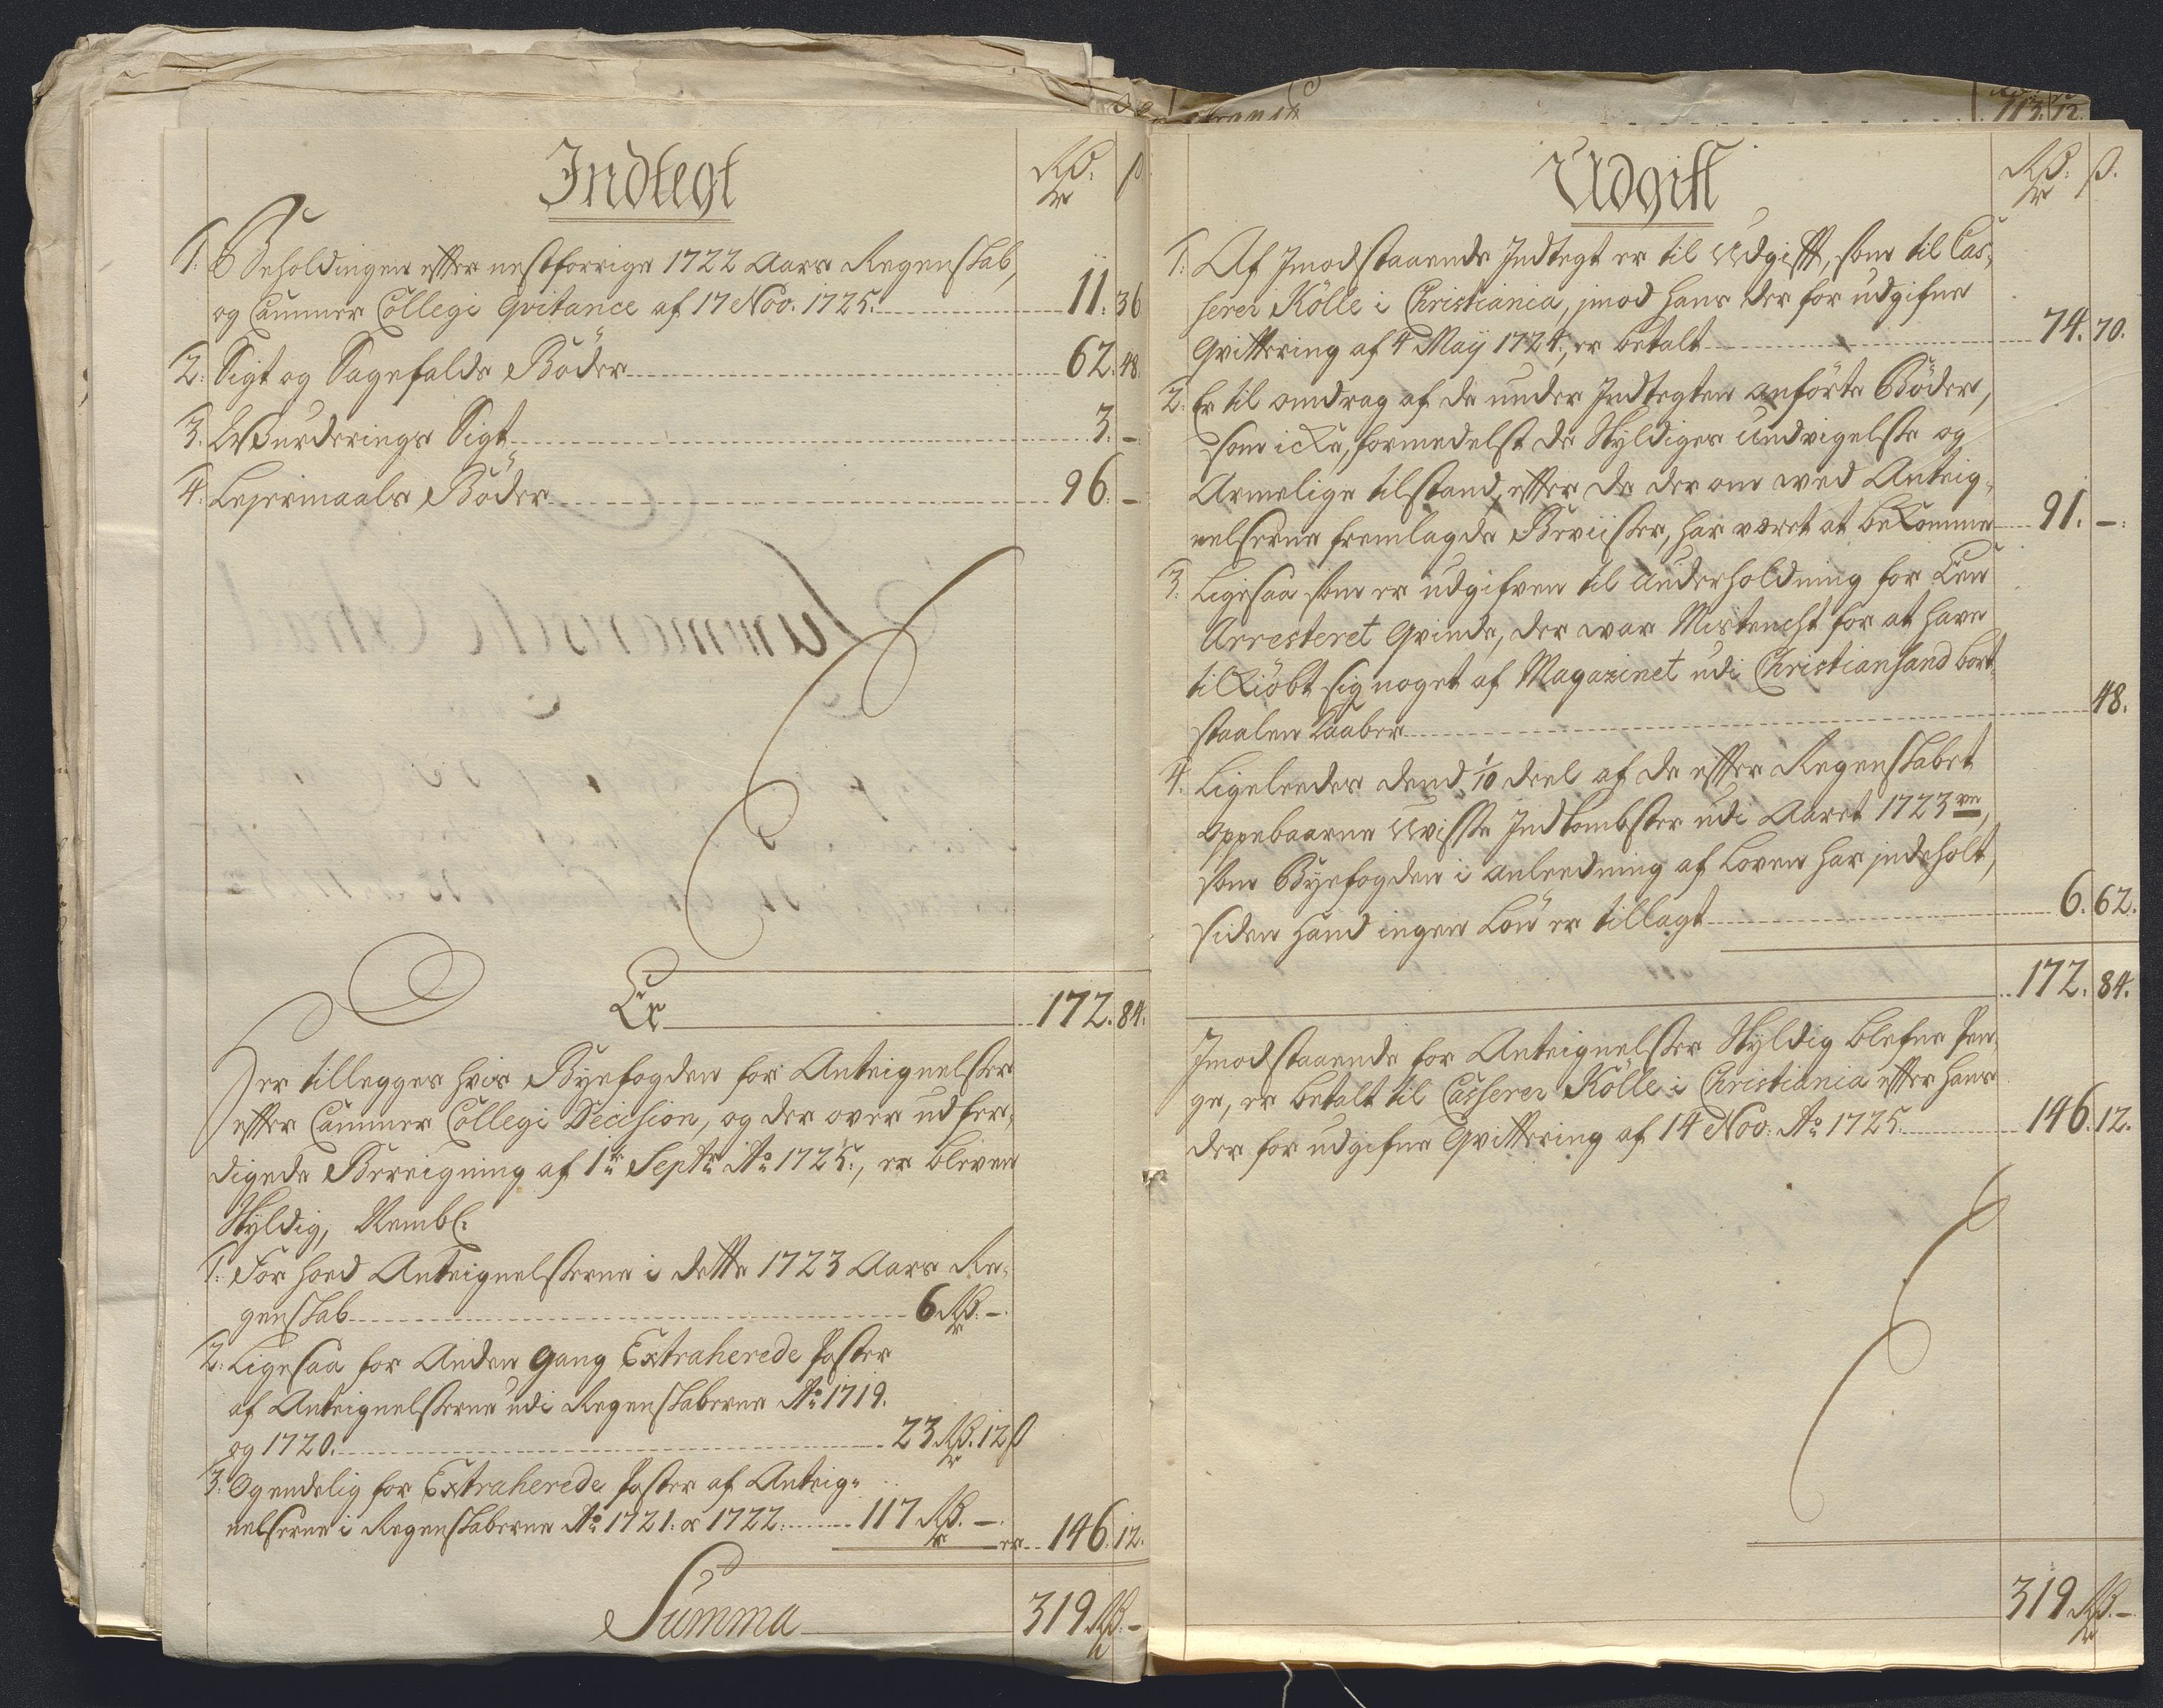 Indtegt
Rd. ß
1. Beholdingen effter nestforrige 1722 Aars Regenskab,
og Cammer Collegi Qvitance af 17 Nov. 1725. 11. 36
2. Sigt og Sagefalds Böder 62. 48.
3. Wurderings Sigt 3. -
4. Lejermaals Böder 96. -
Er 172. 84.
Her tillegges hvis Byefogden for Anteignelser
effter Cammer Collegi Decision, og der over udfer-
digede Bereigning af 1te Septr. Ao 1725, er bleven
Skyldig, Nembl:
1. For hoed Anteignelserne i dette 1723 Aars Re-
genskab 6 Rd. -
2. Ligesaa for Anden gang Extraherede Poster
af Anteignelserne udi Regenskaberne Ao 1719.
og 1720. 23 Rd. 12 ß
3. Og endelig for Extraherede Poster af Anteig-
nelserne i Regenskaberne Ao 1721. & 1722. 117 Rd. -
er 146. 12.
Summa 319 Rd. -
113. 72.
Udgift
Rd. ß.
1. Af Jmodstaaende Indtegt er til Udgifft, som til Cas-
serer Kölle i Christiania, jmod hans der for udgifne
Qvittering af 4 Maÿ 1724, er betalt 74. 70.
2. Er til andrag af de under Indtegten anförte Böder,
som icke, formedelst de Skyldiges Undvigelse og
Armelige tilstand, effter de der om wed Anteig-
nelserne fremlagde Beviiser, har været at bekomme 91. -
3. Ligesaa som er udgifven til Underholdning for Een
Arresteret Qvinde, der war Mistencht for at have
tilkiöbt sig noget af Magazinet udi Christiansand bort-
staalen Kaaber 48.
4. Ligeleedes dend 1/10 deel af de effter Regenskabet
Oppebaarne Uvisse Indkombster udi Aaret 1723 ve,
som Byefogden i anleedning af Loven har jndeholt,
siden hand ingen Lön er tillagt 6. 62.
172. 84.
Jmodstaaende for Anteignelser Skyldig blefne Pen-
ge, er betalt til Casserer Kölle i Christiania effter hans
der for udgifne Qvittering af 14 Nov: Ao 1725. 146. 12.
319 Rd. -